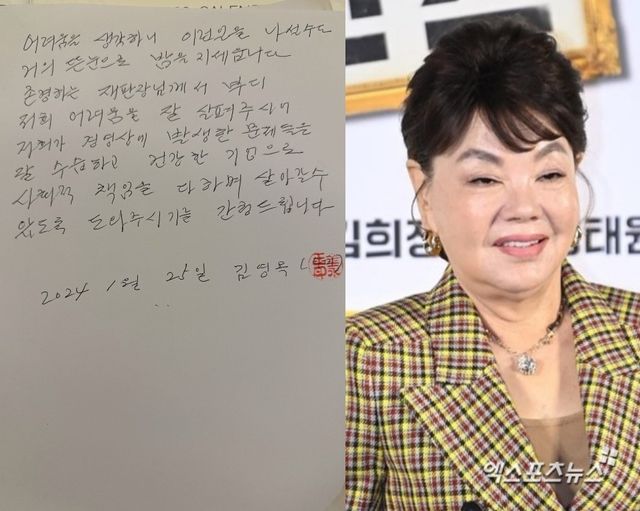 어려움을 생각하니 이런모를 나선수도
거의 뜬눈으로 밤을 지세웁니다
존경하는 재판장님께서 부디
저희 어려움을 잘 살펴주시어
저희가 경영상에 발생한 문제들을
잘 수습하고 건강한 기업으로
사회적 책임을 다하며 살아갈수
있도록 도와주시기를 간청드립니다
2024 1월 25일 김영옥
김희정
태원
엑스포츠뉴스